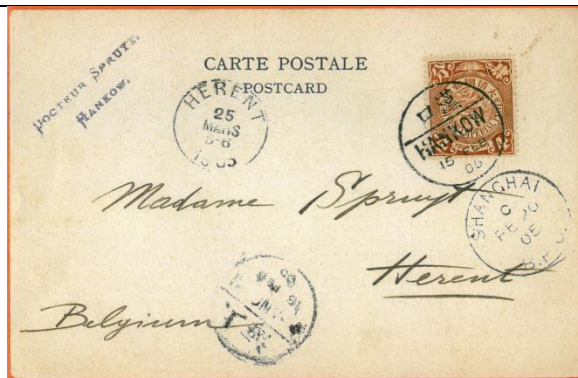 DOCTEUR SPRUYT.
HANKOW.
CARTE POSTALE
POSTCARD
HERENT
25
MARS
漢口
HANKOW
15 FEB
05
SHANGHAI
C
FE 20
05
Madame Spruyt
Herent
Belgium